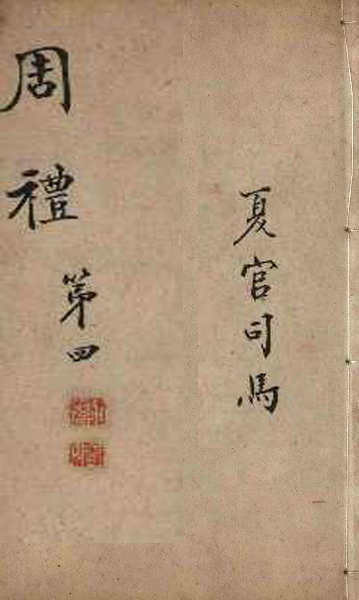 夏官司馬
周禮
第四